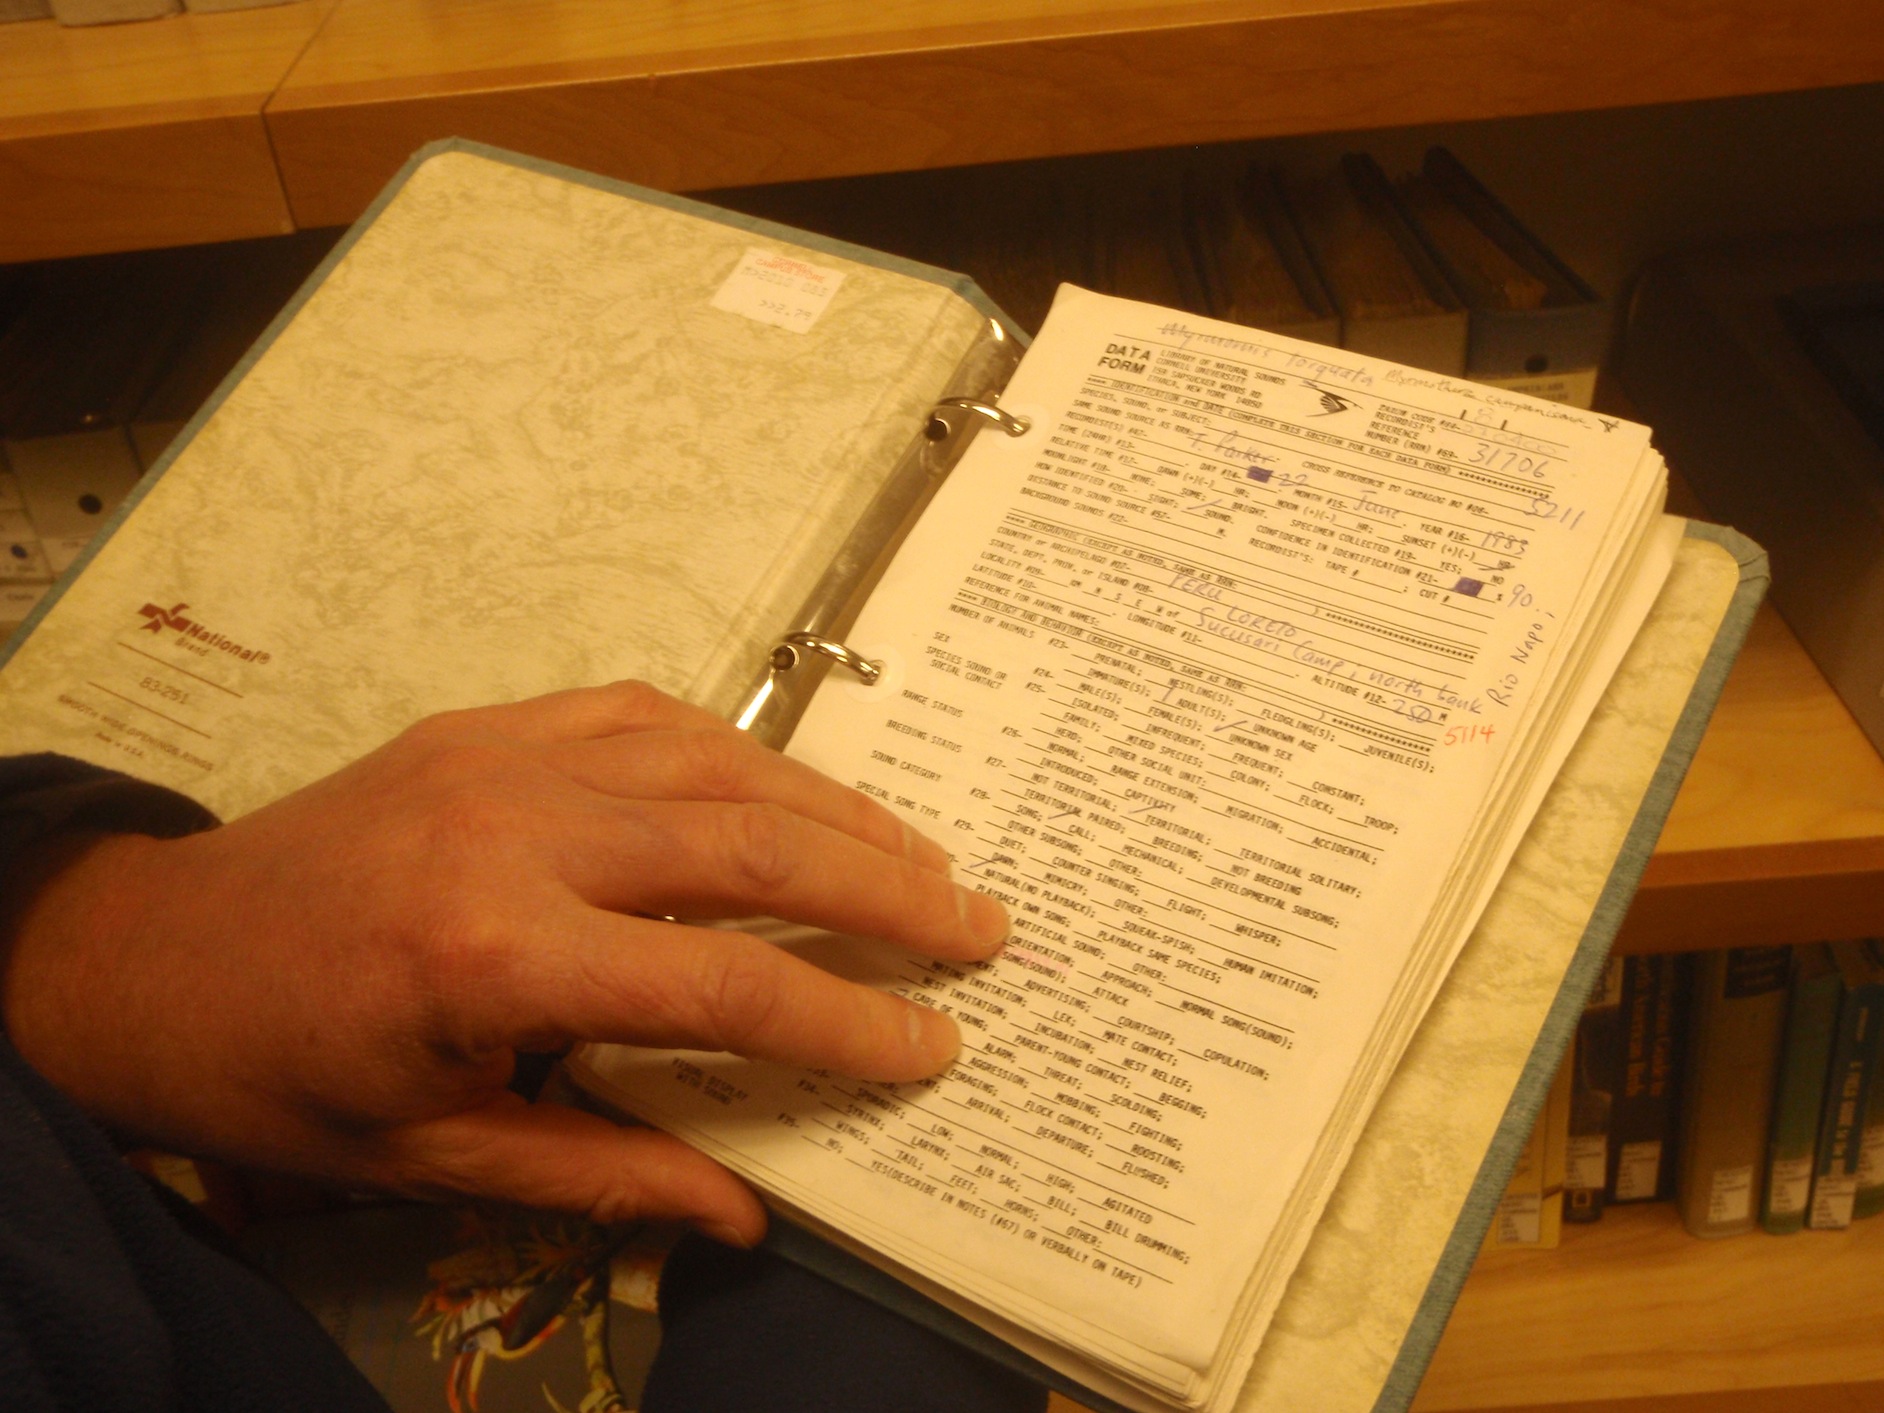 National®
Brand
83-251
SMOOTH WIDE OPENING RINGS
Made in U.S.A.
Torquata
DATA
FORM
LIBRARY OF NATURAL SOUNDS
CORNELL UNIVERSITY
159 SAPSUCKER WOODS RD
ITHACA, NEW YORK 14850
RECORDIST'S
REFERENCE
NUMBER (RRN) #69- 31706
IDENTIFICATION and DATE (COMPLETE THIS SECTION FOR EACH DATA FORM)
SPECIES, SOUND, or SUBJECT:
SAME SOUND SOURCE AS RRN: CROSS REFERENCE TO CATALOG NO #08- 5211
RECORDIST(S) #02- T. Parker
TIME (24HR) #13- DAY #14- 22 MONTH #15- June YEAR #16- 1983
RELATIVE TIME #17- DAWN (+)(-) HR; NOON (+)(-) HR; SUNSET (+)(-) HR
MOONLIGHT #18- NONE; SOME; BRIGHT. SPECIMEN COLLECTED #19- YES; NO
HOW IDENTIFIED #20- SIGHT; SOUND. CONFIDENCE IN IDENTIFICATION #21- 90
DISTANCE TO SOUND SOURCE M. RECORDIST'S: TAPE # ; CUT #
BACKGROUND SOUNDS #22-
GEOGRAPHIC (EXCEPT AS NOTED, SAME AS RRN:
COUNTRY or ARCHIPELAGO #07- PERU
STATE, DEPT, PROV. or ISLAND #08- LORETO
LOCALITY #09- KM N S E W of Sucusari Camp, north bank Rio Napo;
LATITUDE #10- LONGITUDE #11- ALTITUDE #12- 250 M
REFERENCE FOR ANIMAL NAMES:
5114
BIOLOGY AND BEHAVIOR (EXCEPT AS NOTED, SAME AS RRN:
NUMBER OF ANIMALS #23- PRENATAL; NESTLING(S); FLEDGLING(S); JUVENILE(S);
IMMATURE(S); ADULT(S); UNKNOWN AGE
SEX #24- MALE(S); FEMALE(S); UNKNOWN SEX
SPECIES SOUND OR #25- ISOLATED; INFREQUENT; FREQUENT; CONSTANT;
SOCIAL CONTACT FAMILY; MIXED SPECIES; COLONY; FLOCK; TROOP;
HERD; OTHER SOCIAL UNIT:
RANGE STATUS #26- NORMAL; RANGE EXTENSION; MIGRATION; ACCIDENTAL;
INTRODUCED; CAPTIVITY
BREEDING STATUS #27- NOT TERRITORIAL; TERRITORIAL; TERRITORIAL SOLITARY;
TERRITORIAL PAIRED; BREEDING; NOT BREEDING
SOUND CATEGORY #28- SONG; CALL; MECHANICAL; DEVELOPMENTAL SUBSONG;
OTHER SUBSONG; OTHER:
SPECIAL SONG TYPE #29- DUET; COUNTER SINGING; FLIGHT; WHISPER;
DAWN; MIMICRY; OTHER:
NATURAL(NO PLAYBACK); SQUEAK-SPISH; HUMAN IMITATION;
PLAYBACK OWN SONG; PLAYBACK SAME SPECIES;
ARTIFICIAL SOUND; OTHER:
ORIENTATION; APPROACH; NORMAL SONG(SOUND);
SONG(SOUND); ATTACK
ADVERTISING; COURTSHIP; COPULATION;
MATING INVITATION; LEK; MATE CONTACT;
NEST INVITATION; INCUBATION; NEST RELIEF;
CARE OF YOUNG; PARENT-YOUNG CONTACT; BEGGING;
ALARM; THREAT; SCOLDING; FIGHTING;
AGGRESSION; MOBBING; ROOSTING;
FORAGING; FLOCK CONTACT; FLUSHED;
ARRIVAL; DEPARTURE;
SPORADIC; LOW; NORMAL; HIGH; AGITATED
#34- SYRINX; LARYNX; AIR SAC; BILL; BILL DRUMMING;
WINGS; TAIL; FEET; HORNS; OTHER:
VISUAL DISPLAY #35- NO; YES(DESCRIBE IN NOTES (#67) OR VERBALLY ON TAPE)
WITH SOUND